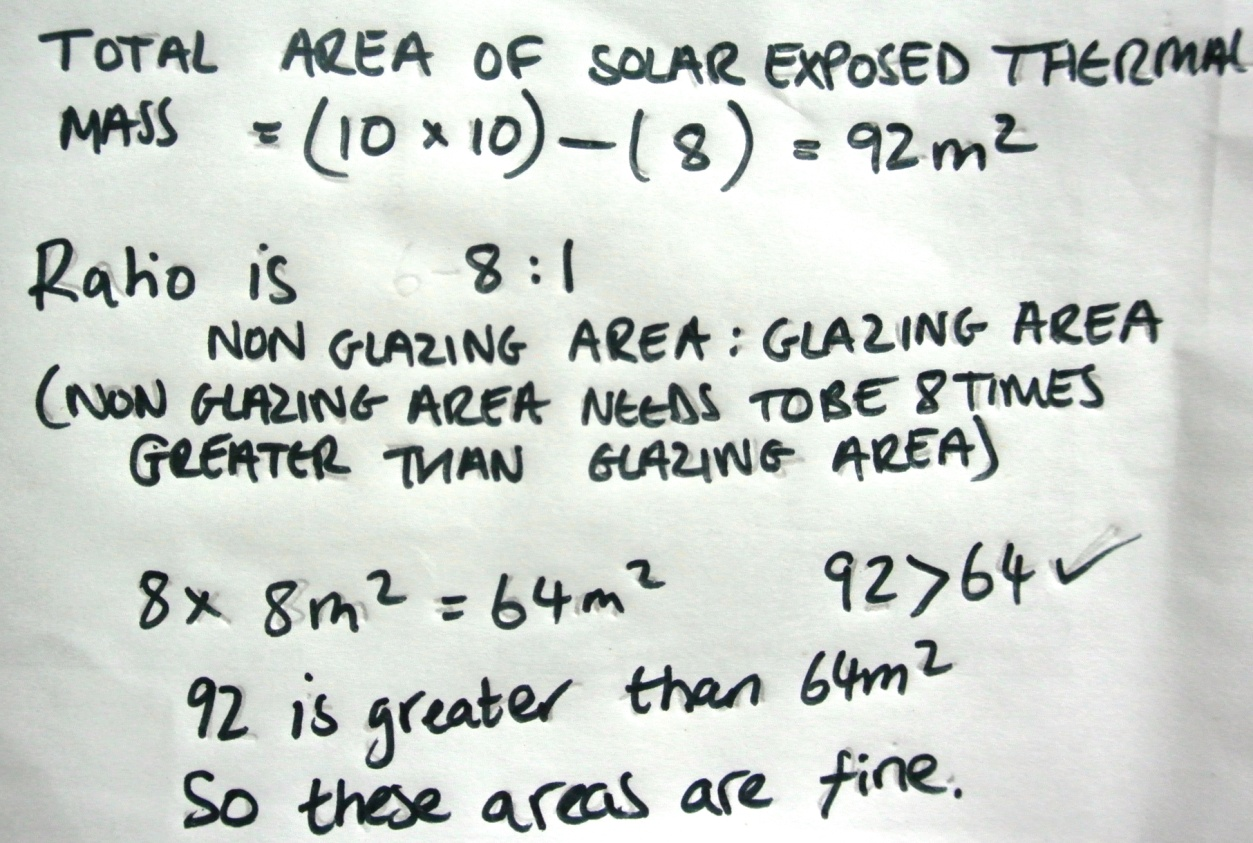 TOTAL AREA OF SOLAR EXPOSED THERMAL
MASS = (10 × 10) – (8) = 92m²
Ratio is 8:1
NON GLAZING AREA : GLAZING AREA
(NON GLAZING AREA NEEDS TO BE 8 TIMES
GREATER THAN GLAZING AREA)
8 × 8m² = 64m² 92>64 ✓
92 is greater than 64m²
So these areas are fine.